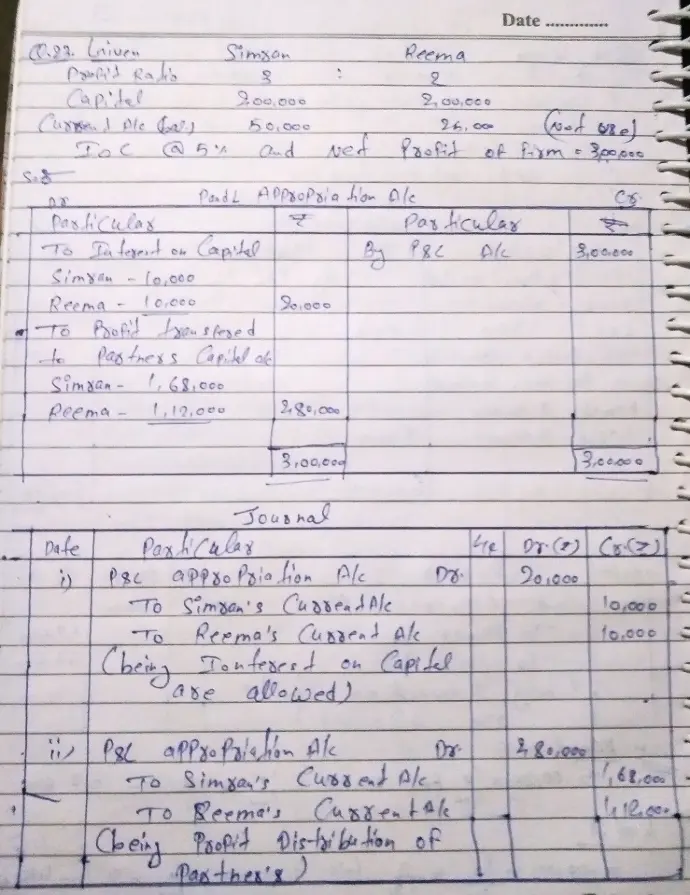 Date .............
Q.23. Given Simran Reema
Profit Ratio 3 : 2
Capital 2,00,000 2,00,000
Current A/c (bal.) 50,000 25,000 (Not use)
IoC @ 5% and Net Profit of firm = 3,00,000
Dr P and L Appropriation A/c Cr.
Particular ₹ Particular ₹
To Interest on Capital By P&L A/c 3,00,000
Simran - 10,000
Reema - 10,000 20,000
To Profit transfered
to Partners Capital a/c
Simran - 1,68,000
Reema - 1,12,000 2,80,000
3,00,000 3,00,000
Journal
Date Particular Dr.(₹) Cr.(₹)
i) P&L appropriation A/c Dr. 20,000
To Simran's Current A/c 10,000
To Reema's Current A/c 10,000
(being Ionterest on Capital
are allowed)
ii) P&L appropriation A/c Dr. 2,80,000
To Simran's Current A/c 1,68,000
To Reema's Current A/c 1,12,000
(being Profit Distribution of
Partner's)